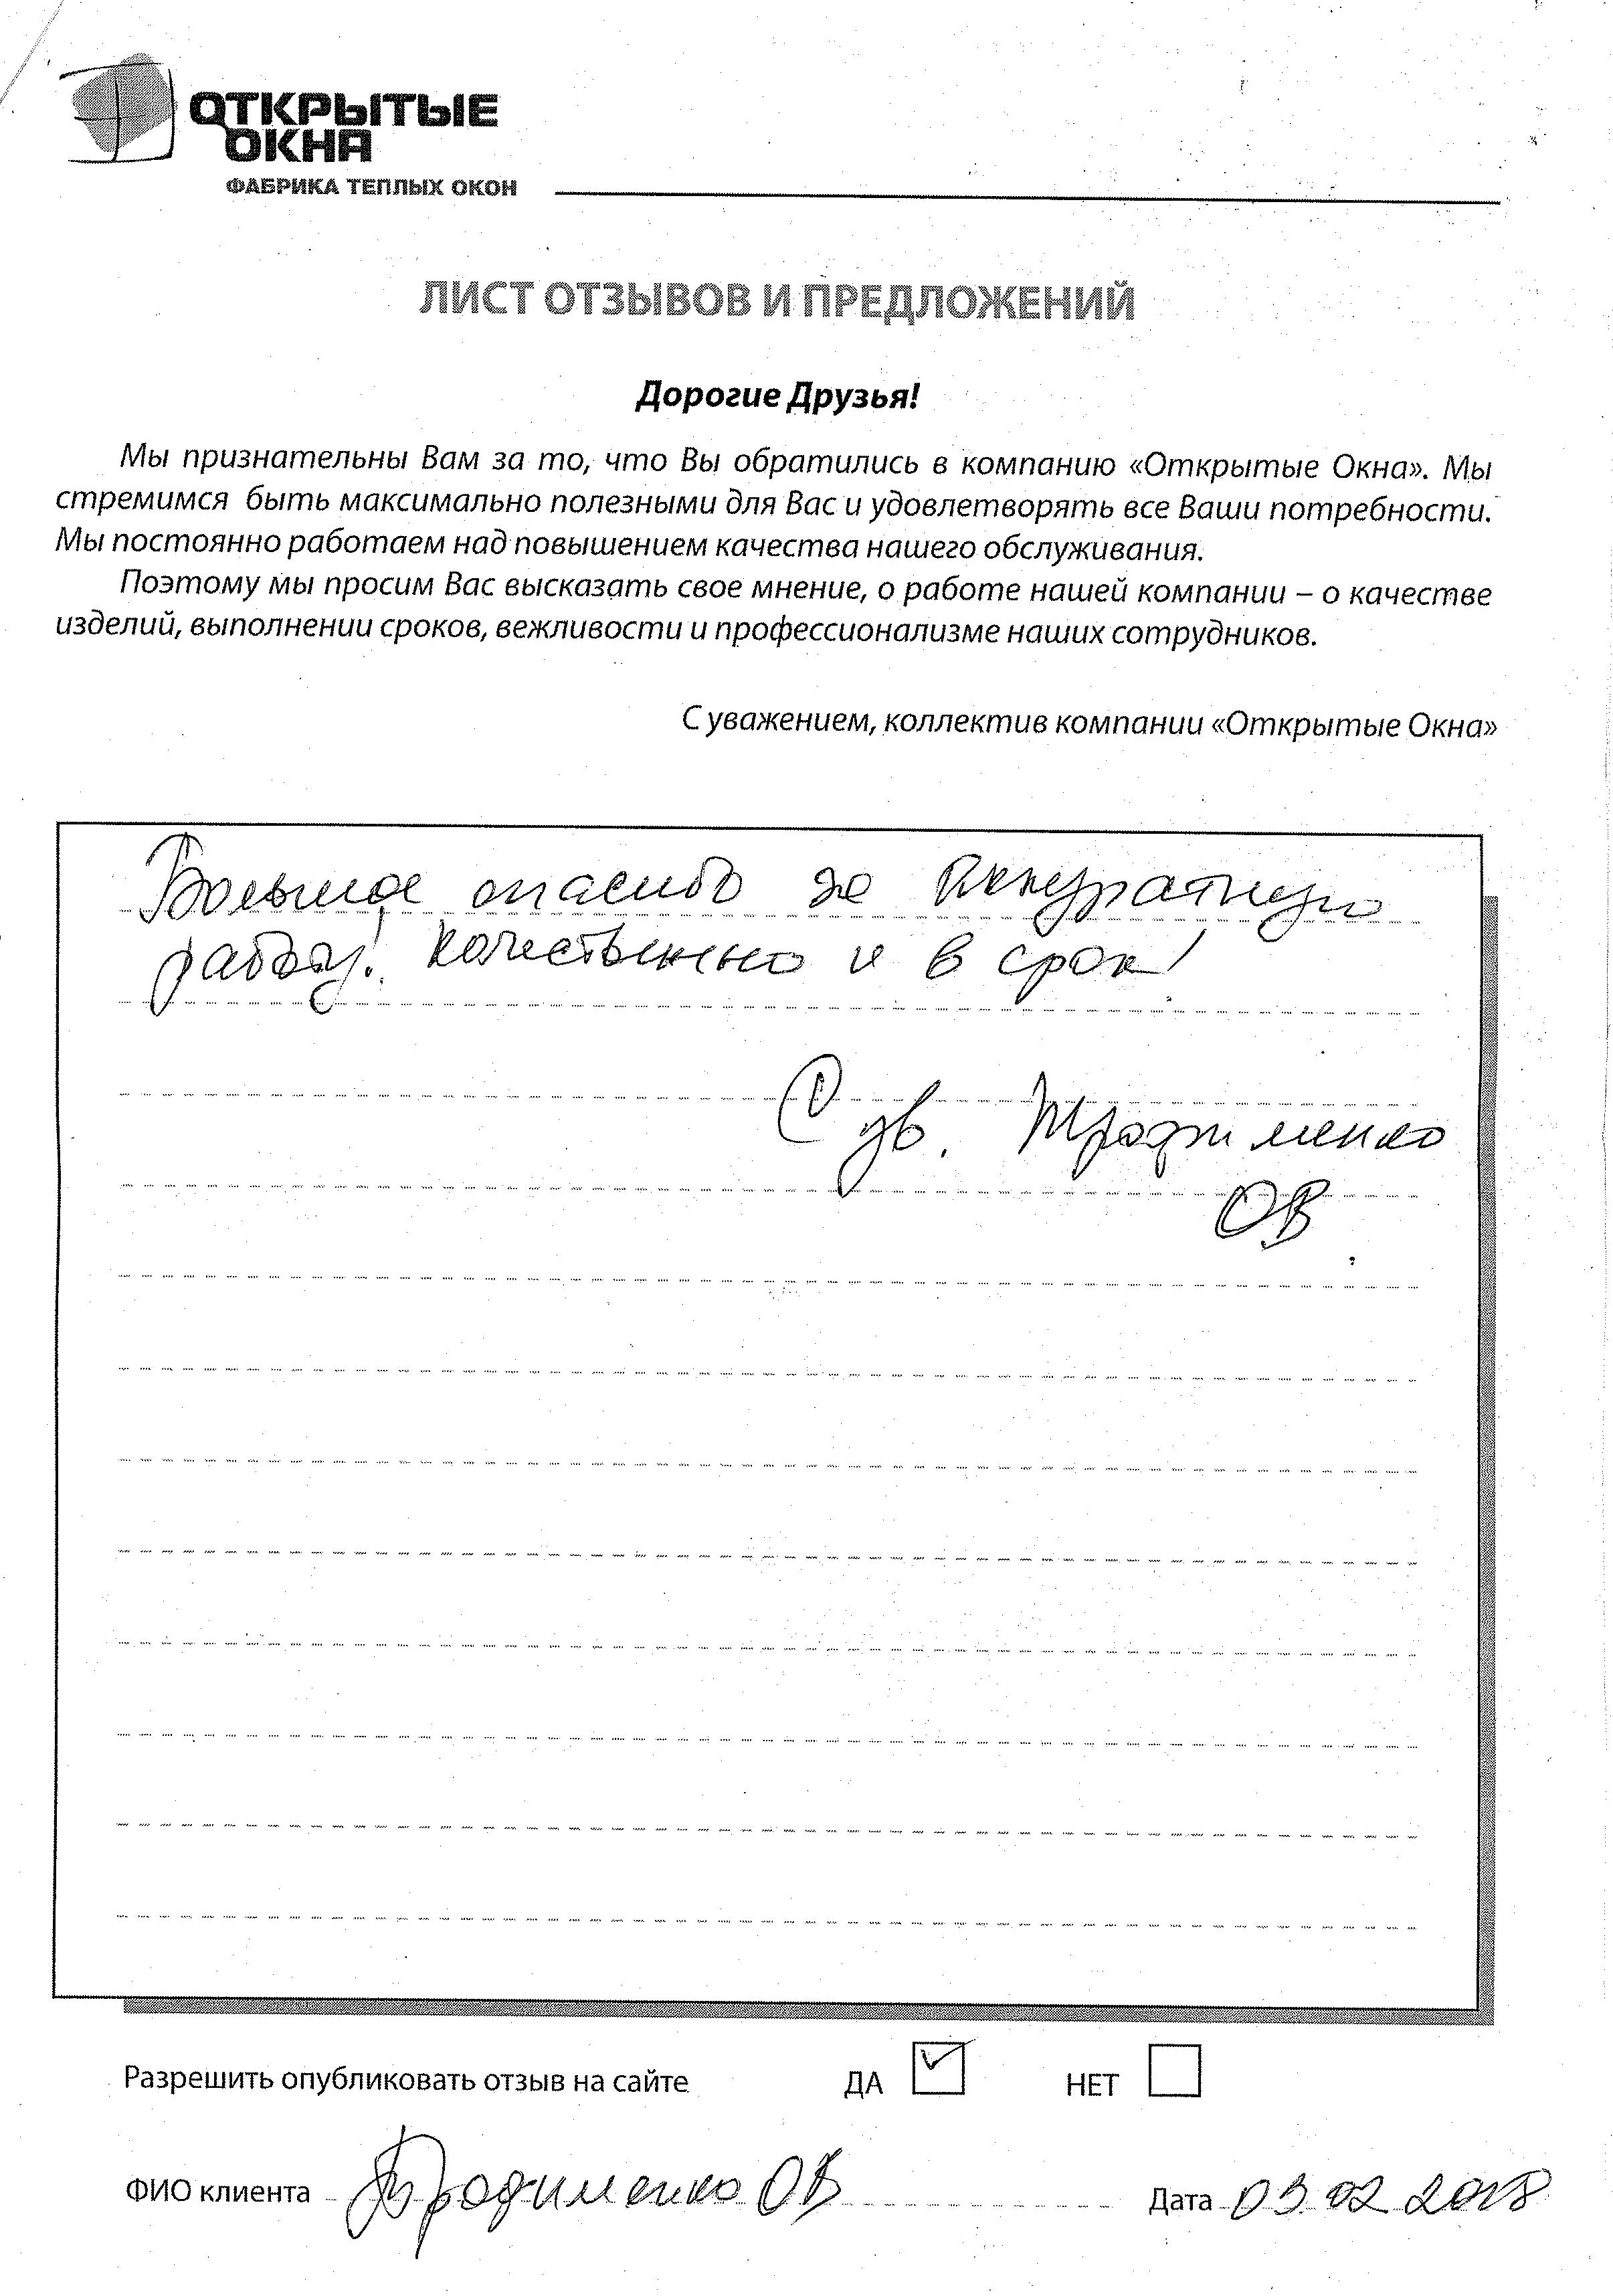 ОТКРЫТЫЕ
ОКНА
ФАБРИКА ТЕПЛЫХ ОКОН
ЛИСТ ОТЗЫВОВ И ПРЕДЛОЖЕНИЙ
Дорогие Друзья!
Мы признательны Вам за то, что Вы обратились в компанию «Открытые Окна». Мы
стремимся быть максимально полезными для Вас и удовлетворять все Ваши потребности.
Мы постоянно работаем над повышением качества нашего обслуживания.
Поэтому мы просим Вас высказать свое мнение, о работе нашей компании – о качестве
изделий, выполнении сроков, вежливости и профессионализме наших сотрудников.
С уважением, коллектив компании «Открытые Окна»
Большое спасибо за Аккуратную
работу! Качественно и в срок!
С ув.
ОВ
Разрешить опубликовать отзыв на сайте ДА НЕТ
ФИО клиента ОВ Дата 03.02.2018